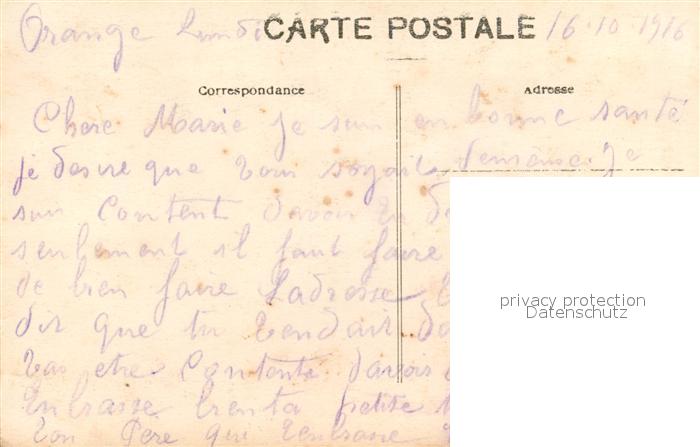 Orange Lundi CARTE POSTALE 16.10.1916
Correspondance Adresse
Chere Marie je suis en bonne santé
je desire que vous soyait de meme. je
suis content davoir eu de
seulement il faut faire
de bien faire ladresse
dit que tu
vas etre contente davoir
Enbrasse bien ta petite
ton Pere qui tenbrasse
privacy protection
Datenschutz